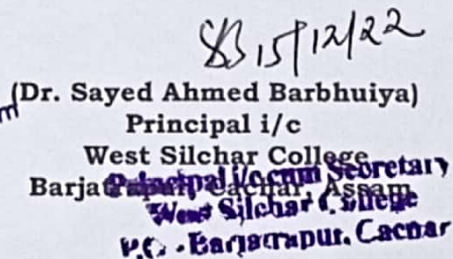 15/12/22
(Dr. Sayed Ahmed Barbhuiya)
Principal i/c
West Silchar College
Barjatrapur, Cachar, Assam
Principal i/c cum Secretary
West Silchar College
P.O.-Barjatrapur, Cachar